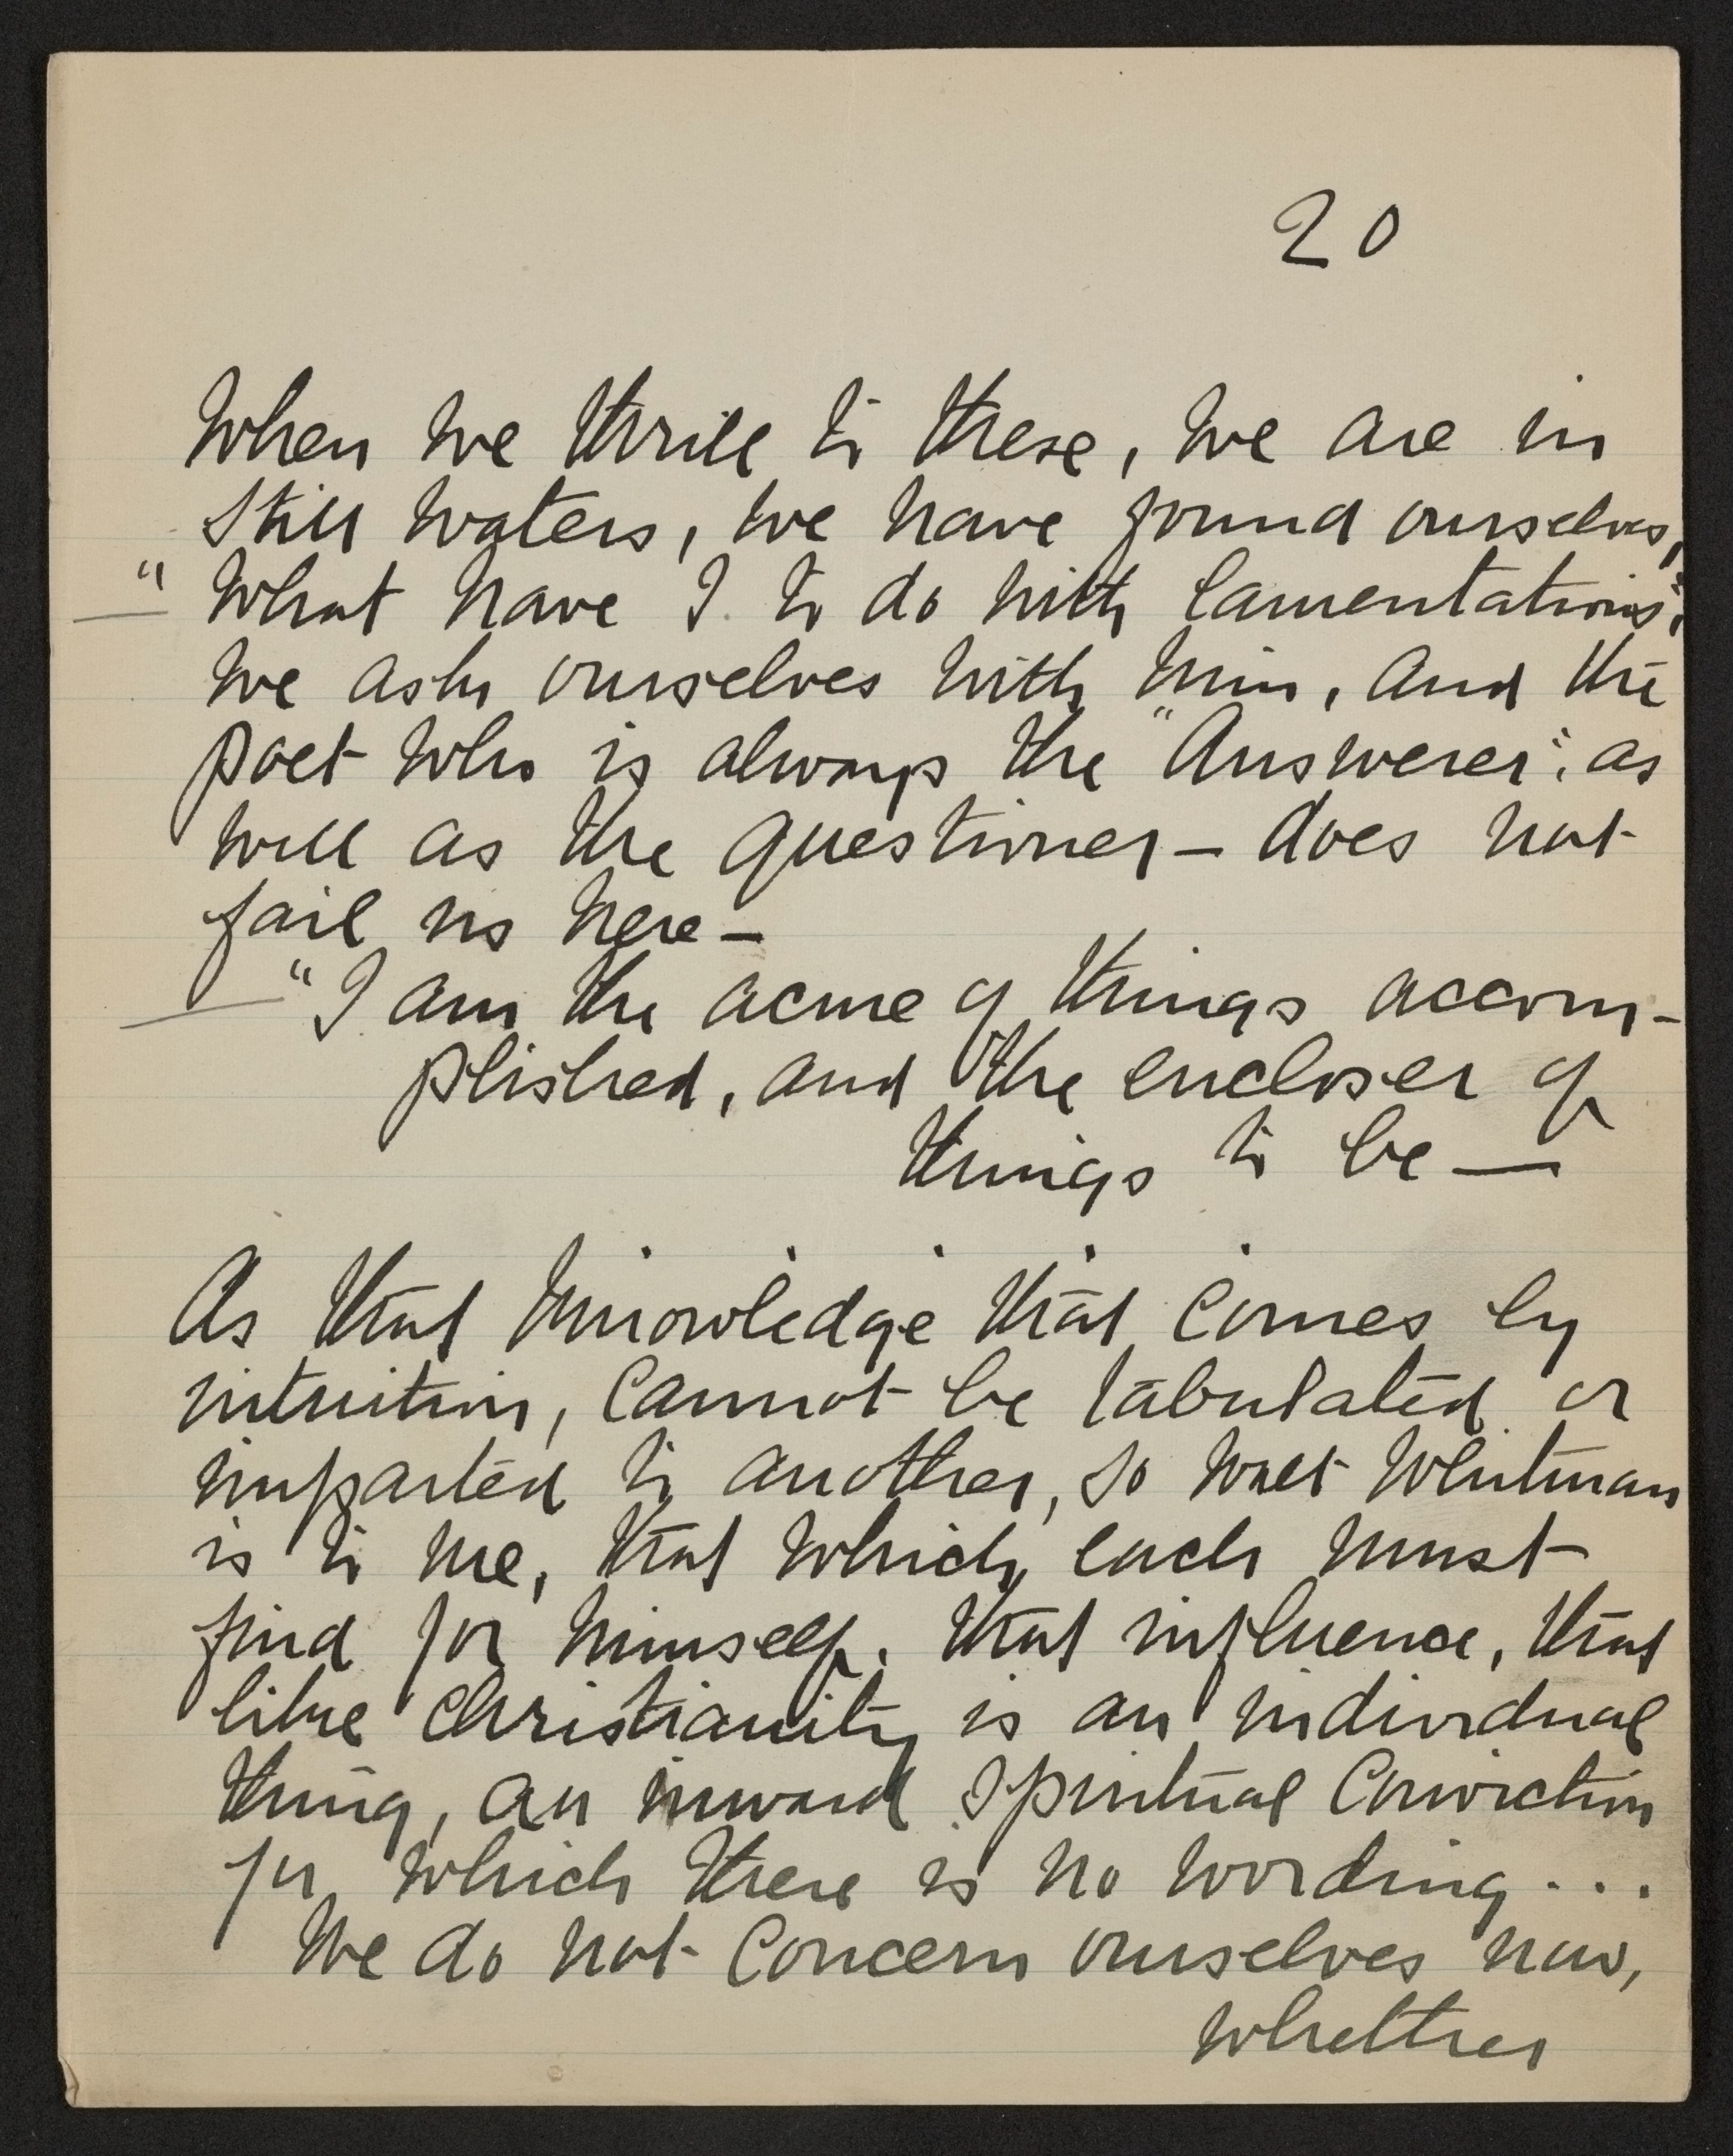 20
When we thrill to these, we are in
still waters, we have found ourselves,
"What have I to do with lamentations";
we ask ourselves with him, and the
poet who is always the "Answerer": as
well as the questioner – does not
fail us here –
"I am the acme of things accom-
plished, and the encloser of
things to be —
As that knowledge that comes by
intuition, cannot be tabulated or
imparted to another, so Walt Whitman
is to me, that which each must
find for himself. that influence, that
like Christianity is an individual
thing, an inward spiritual conviction
for which there is no wording ...
We do not concern ourselves now,
whether